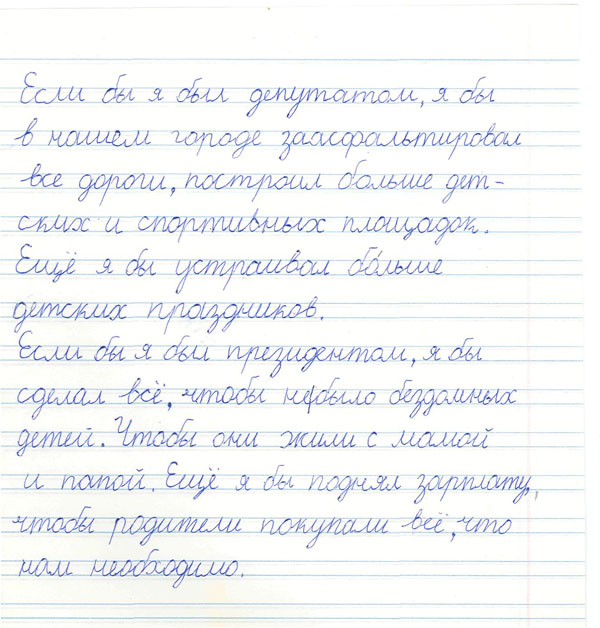 Если бы я был депутатом, я бы
в нашем городе заасфальтировал
все дороги, построил больше дет-
ских и спортивных площадок.
Ещё я бы устраивал бо́льше
детских праздников.
Если бы я был президентом, я бы
сделал всё, чтобы не было бездомных
детей. Чтобы они жили с мамой
и папой. Ещё я бы поднял зарплату,
чтобы родители покупали всё, что
нам необходимо.